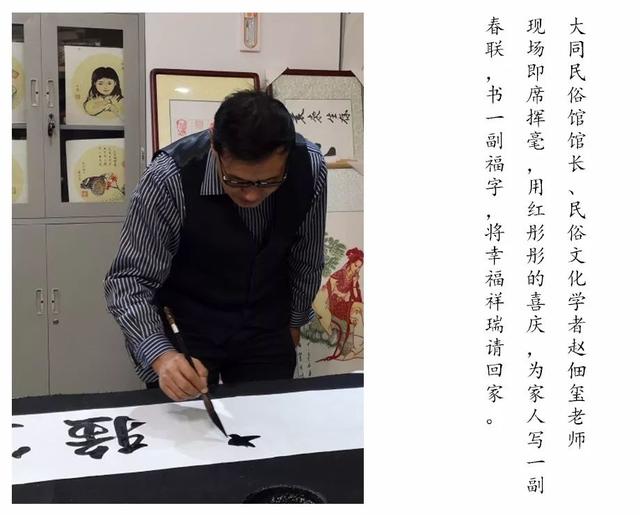 大同民俗馆馆长、民俗文化学者赵佃玺老师
现场即席挥毫，用红彤彤的喜庆，为家人写一副
春联，书一副福字，将幸福祥瑞请回家。